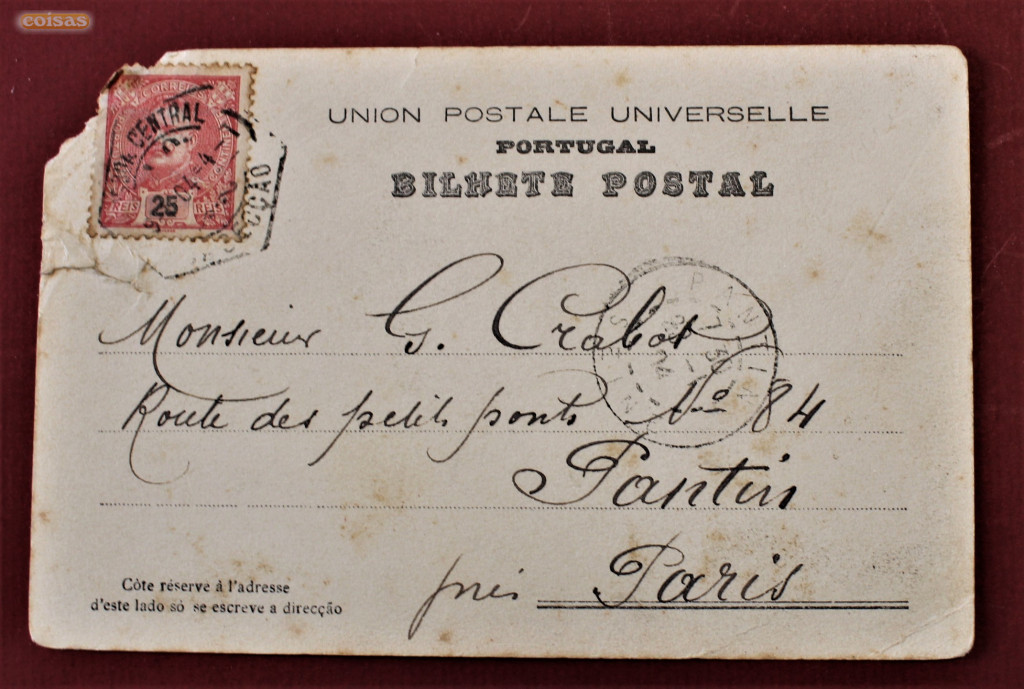 coisas
UNION POSTALE UNIVERSELLE
PORTUGAL
BILHETE POSTAL
CORREIOS
CENTRAL
REIS 25 REIS
PANTIN
Monsieur G. Crabot
Route des petits ponts No 84
Pantin
près Paris
Côte réserve à l'adresse
d'este lado só se escreve a direcção